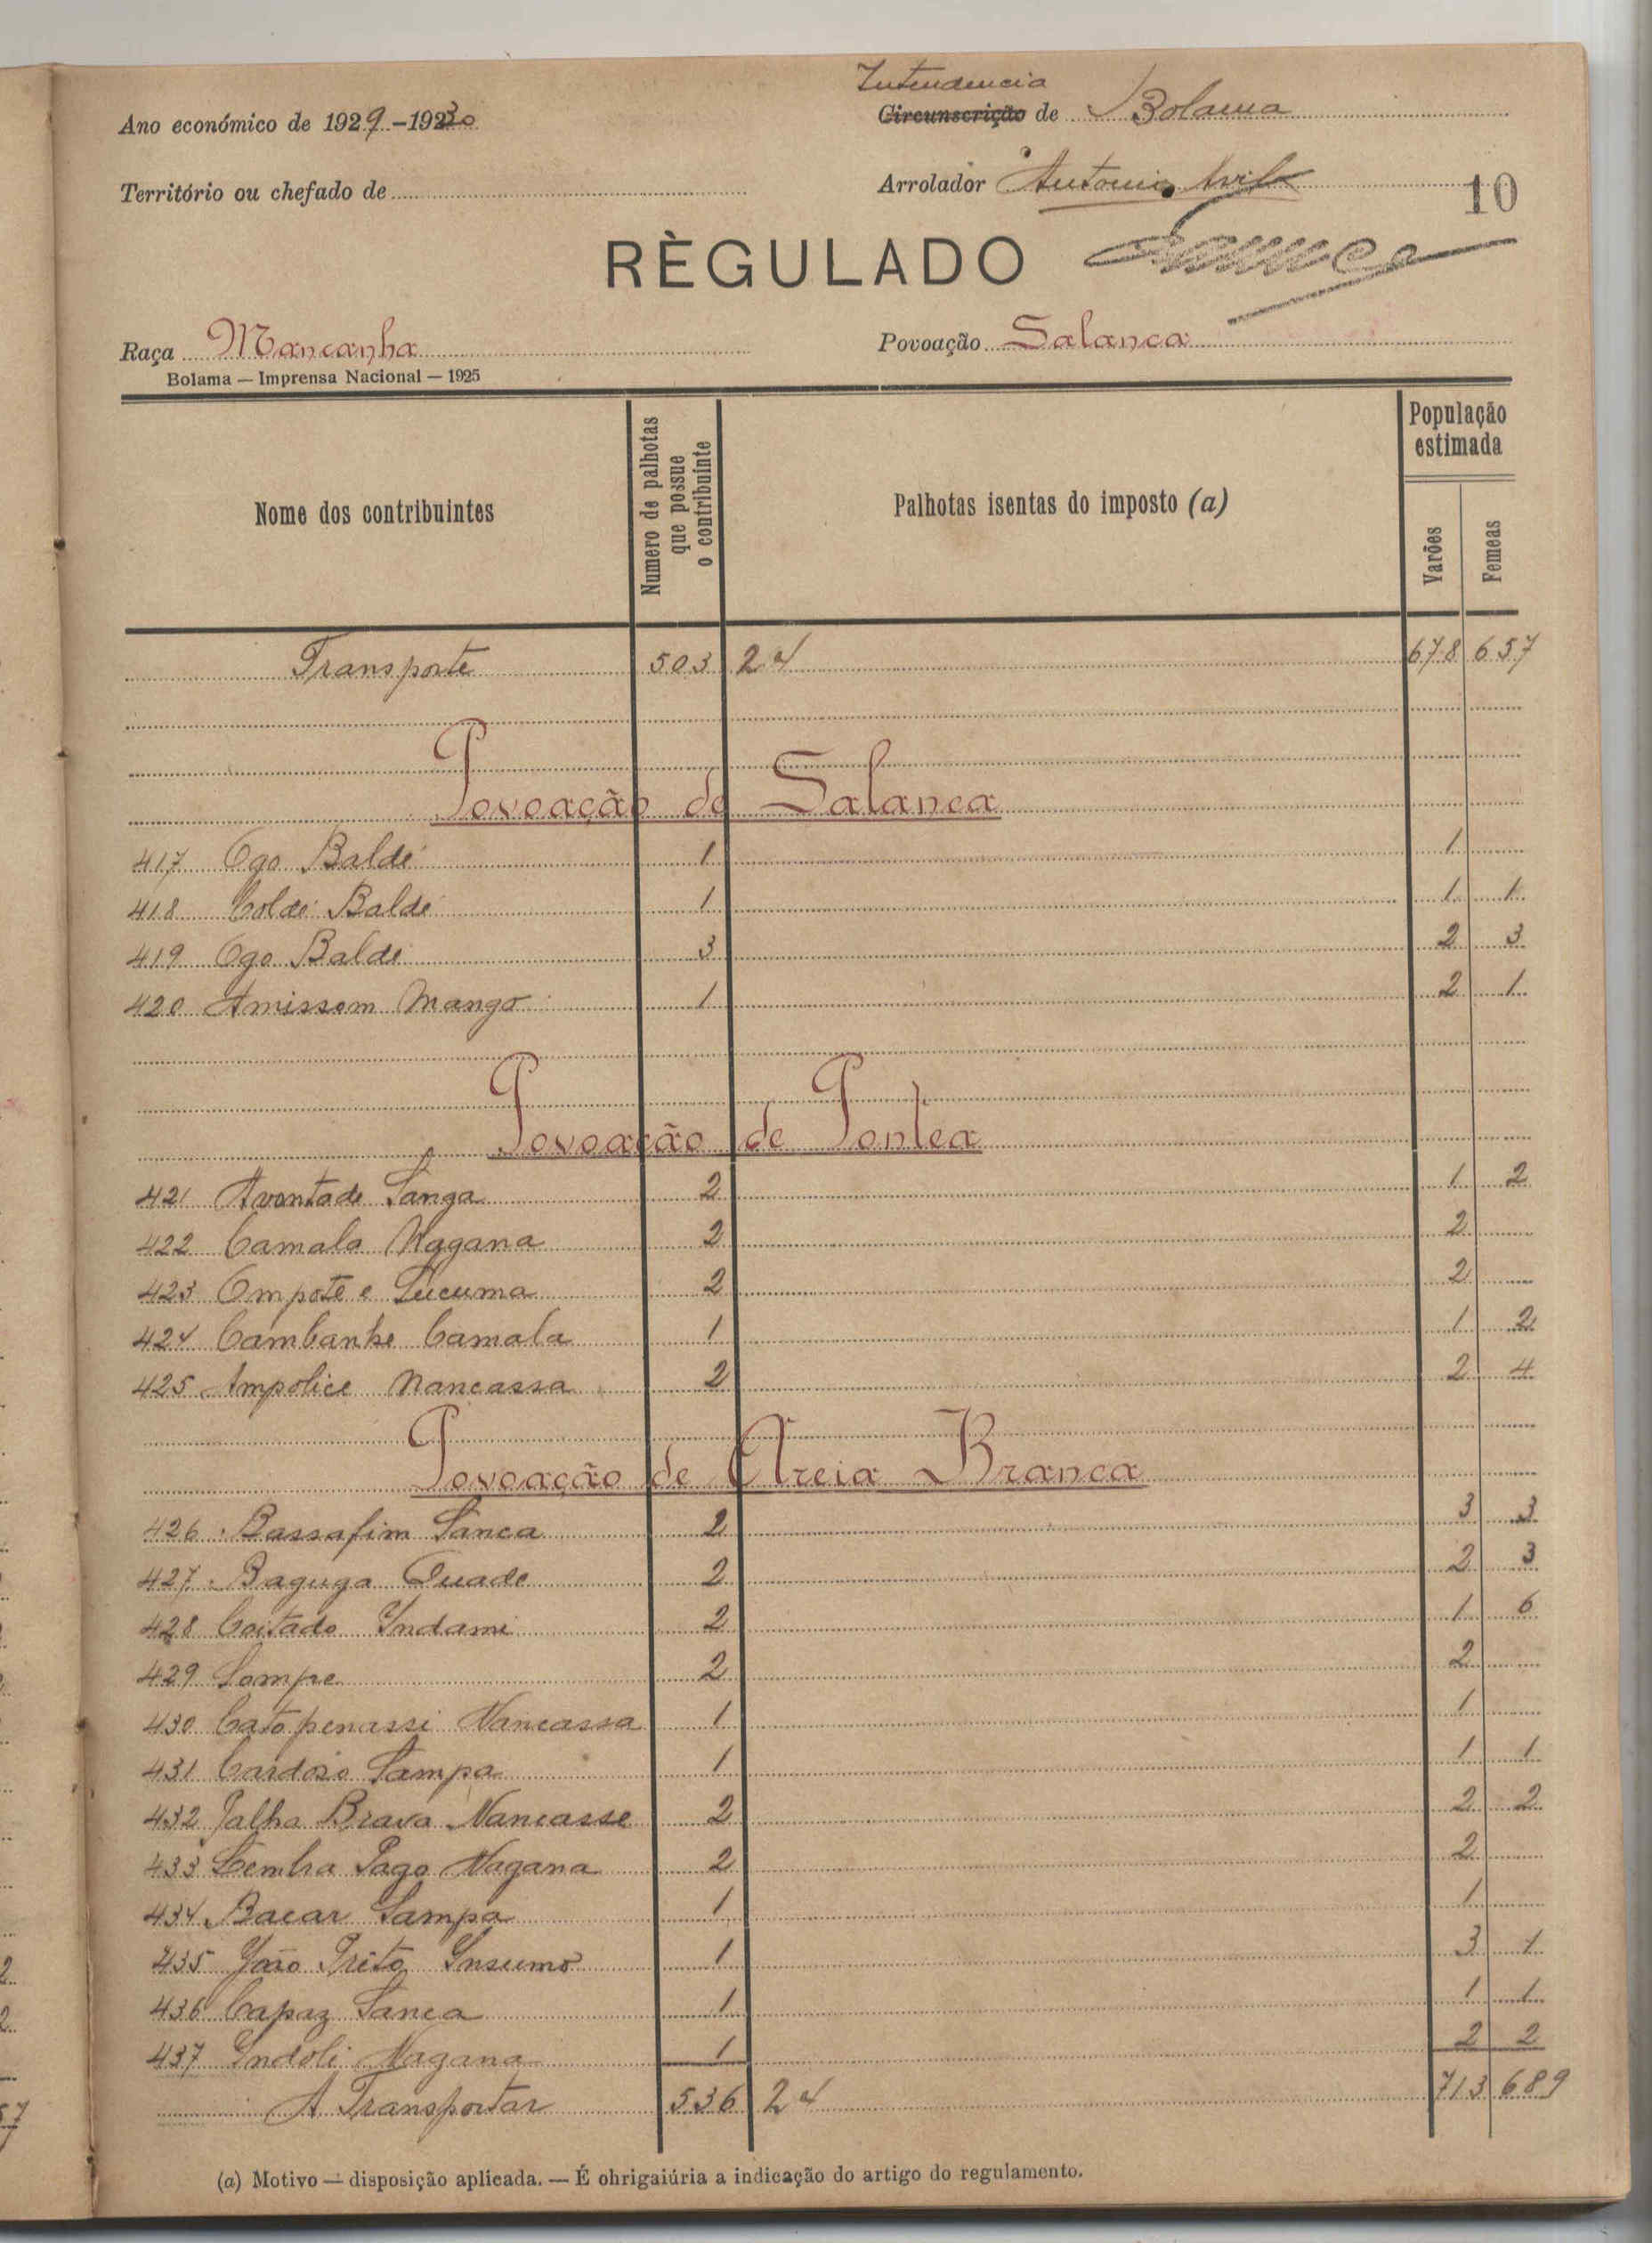 Intendencia
Ano económico de 1929-1930 Circunscrição de Bolama
Território ou chefado de Arrolador Antonio
10
RÈGULADO
Raça Mancanha Povoação Salanca
Bolama — Imprensa Nacional — 1925
Nome dos contribuintes Numero de palhotas que possue o contribuinte Palhotas isentas do imposto (a) População estimada Varões Femeas
Transporte 503 24 678 657
Povoação de Salanca
417 Ogo Baldé 1 1
418 Coldé Baldé 1 1 1
419 Ogo Baldé 3 2 3
420 Amissom Mango 1 2 1
Povoação de Pontea
421 Avontade Sanga 2 1 2
422 Camala Nagana 2 2
423 Ompote e Lucuma 2 2
424 Cambanhe Camala 1 1 2
425 Ampolice Nancassa 2 2 4
Povoação de Areia Branca
426 Bassafim Sanca 2 3 3
427 Baguga Quade 2 2 3
428 Coitado Indami 2 1 6
429 Sompe 2 2
430 Catopenassi Nancassa 1 1
431 Cardoso Sampa 1 1 1
432 Palha Brava Nancasse 2 2 2
433 Lembra Pago Nagana 2 2
434 Bacar Sampa 1 1
435 João Prêto Insumo 1 3 1
436 Capaz Sanca 1 1 1
437 Indoli Nagana 1 2 2
A Transportar 536 24 713 689
(a) Motivo — disposição aplicada. — É ohrigaiúria a indicação do artigo do regulamento.